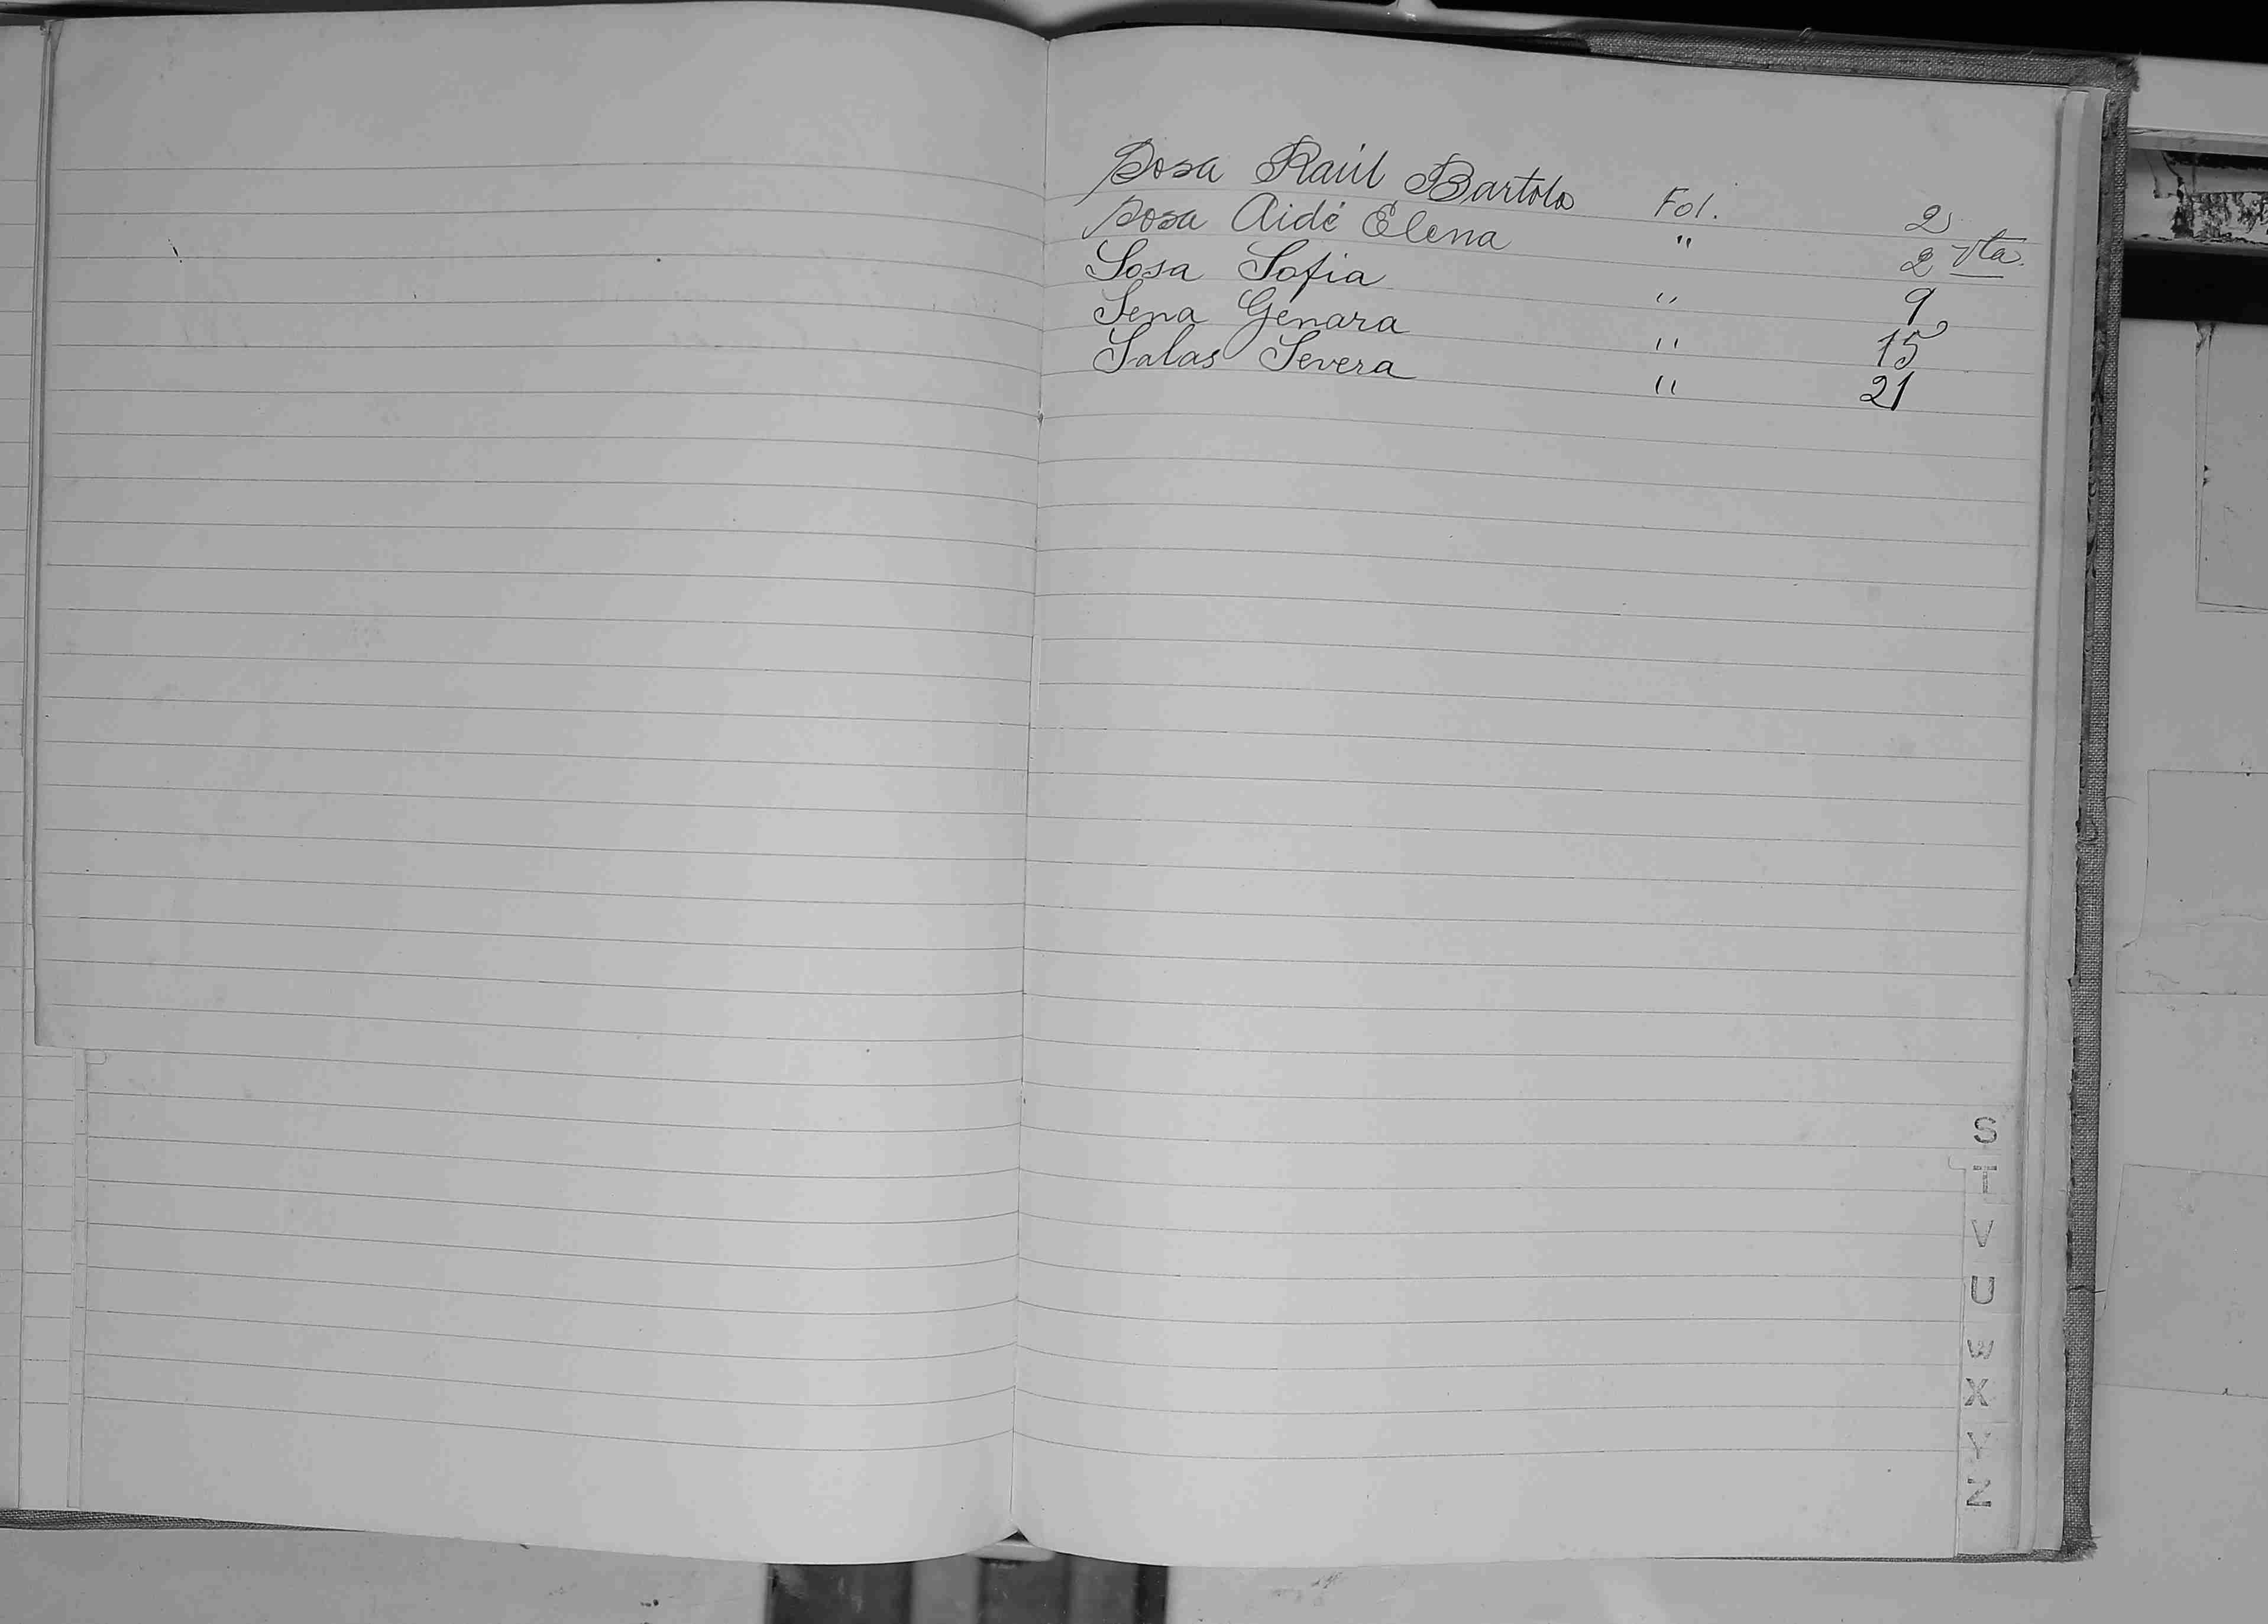 Sosa Raúl Bartolo Fol. 2
Sosa Aidé Elena " 2 Vta.
Sosa Sofia " 9
Sena Genara " 15
Salas Severa " 21
S
T
V
U
W
X
Y
Z